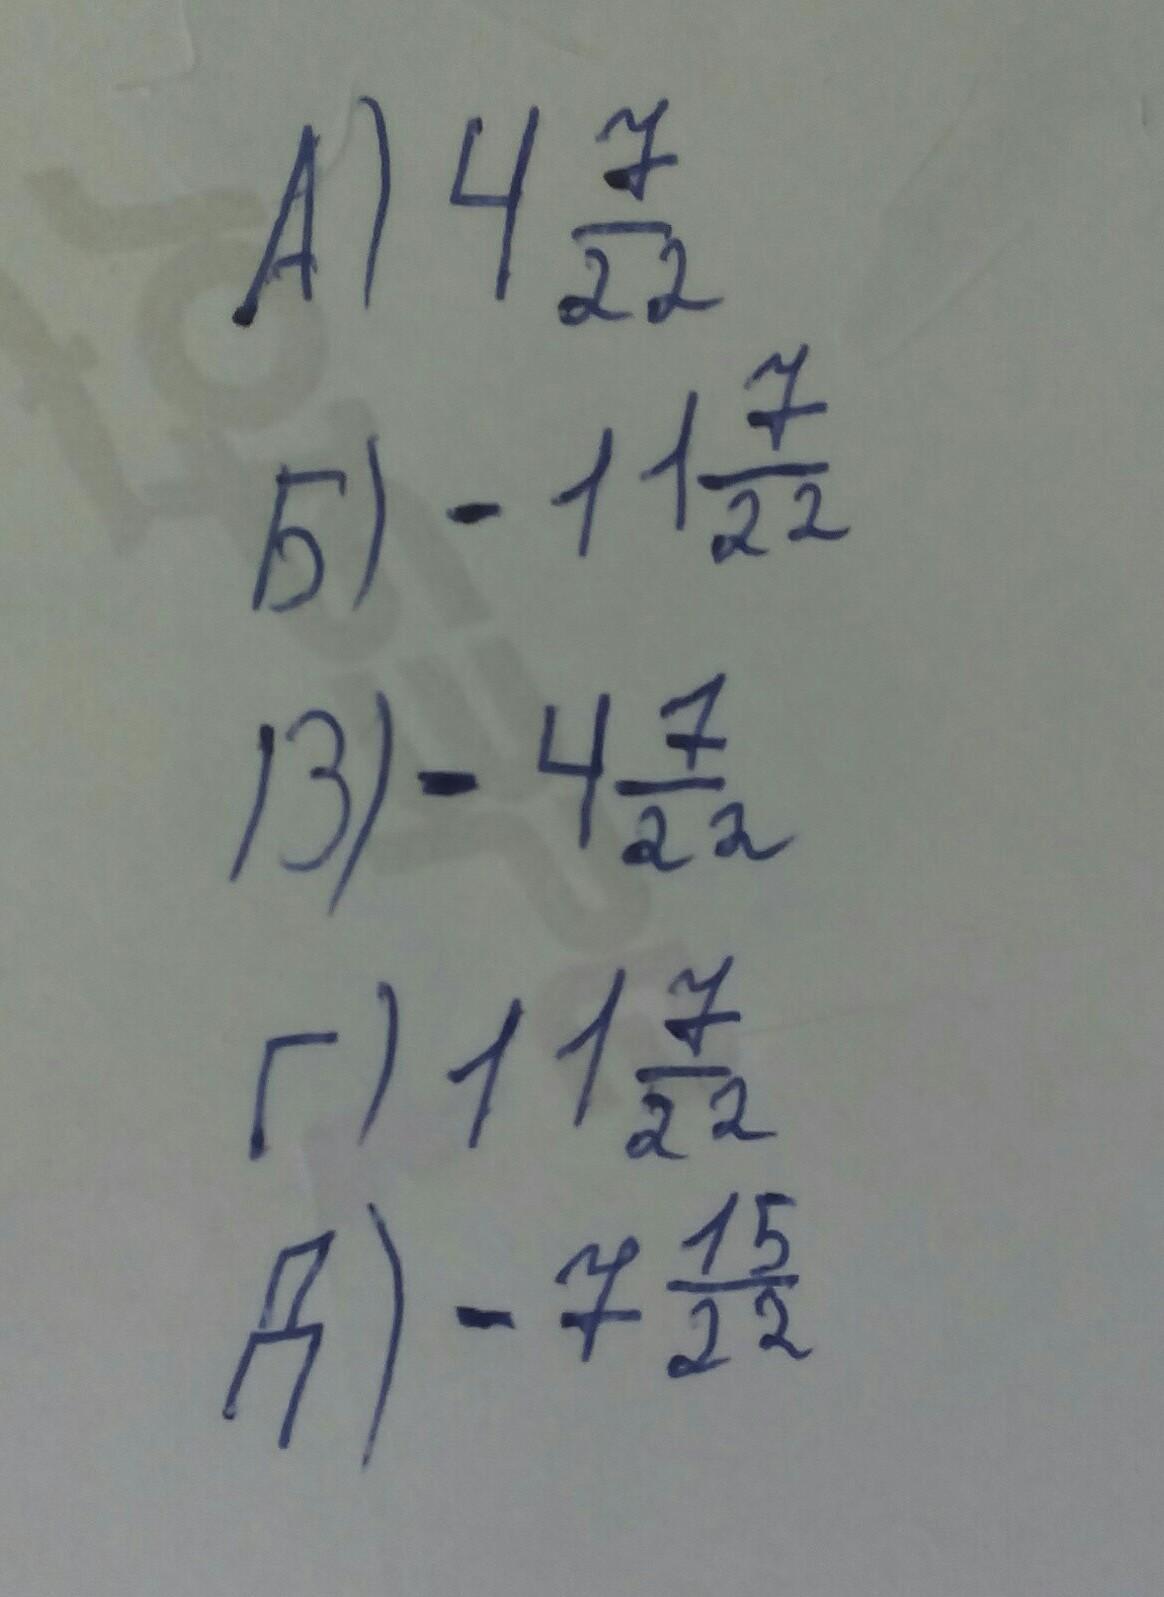 А) 4 7/22
Б) - 11 7/22
В) - 4 7/22
Г) 11 7/22
Д) - 7 15/22